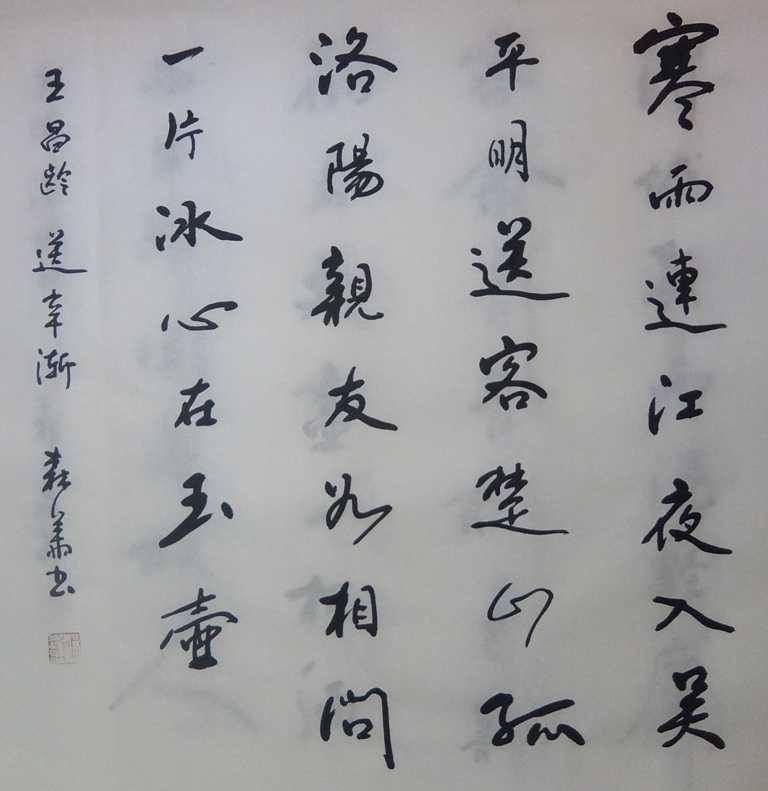 寒雨連江夜入吴
平明送客楚山孤
洛陽親友如相問
一片冰心在玉壺
王昌龄 送辛渐 書